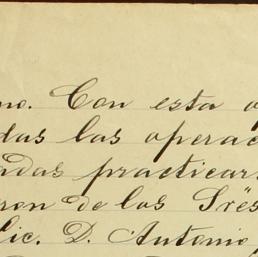 no. Con esta o
das las operac
ndas practicar
ron de los Sres
Lic. D. Antonio,